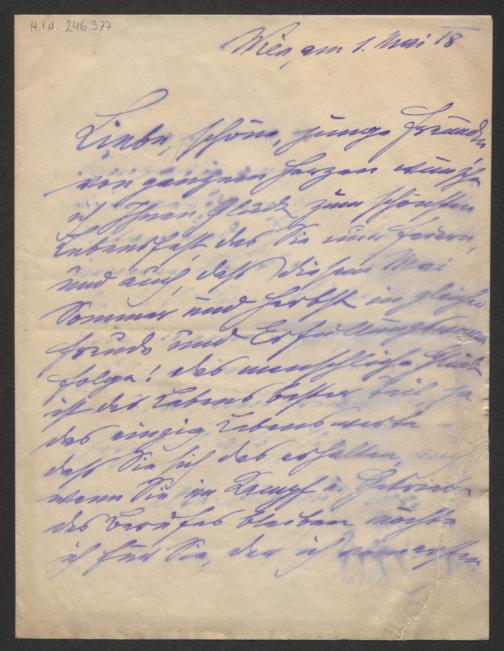 H.I.N. 246.377
Wien, am 1. Mai 18
Liebe, schöne, junge Freundin
von ganzem Herzen wünsche
ich Ihnen Glück zum schönsten
Lebensfest das Sie nun feiern,
und auch, daß diesem Mai
Sommer und Herbst in gleicher
Freude und
folge! Das menschliche Glück
ist des Lebens bester Teil ja
das einzig Lebenswerte –
daß Sie sich das erhalten, auch
wenn Sie im Kampf u. Getriebe
des Berufes bleiben, möchte
ich für Sie, der ich vom ersten